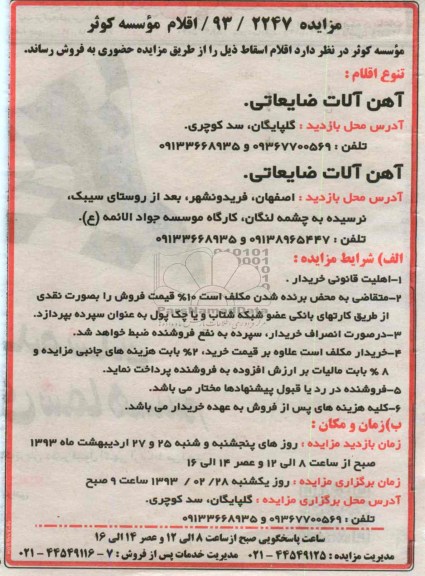 مزایده ۲۲۴۷ / ۹۳ / اقلام مؤسسه کوثر
مؤسسه کوثر در نظر دارد اقلام اسقاط ذیل را از طریق مزایده حضوری به فروش رساند.
تنوع اقلام :
آهن آلات ضایعاتی.
آدرس محل بازدید : گلپایگان، سد کوچری.
تلفن : ۰۹۳۶۷۷۰۰۵۶۹ و ۰۹۱۳۳۶۶۸۹۳۵
آهن آلات ضایعاتی.
آدرس محل بازدید : اصفهان، فریدونشهر، بعد از روستای سیبک،
نرسیده به چشمه لنگان، کارگاه موسسه جواد الائمه (ع).
تلفن : ۰۹۱۳۸۹۶۵۴۴۷ و ۰۹۱۳۳۶۶۸۹۳۵
الف) شرایط مزایده :
۱-اهلیت قانونی خریدار .
۲-متقاضی به محض برنده شدن مکلف است ۱۰% قیمت فروش را بصورت نقدی
از طریق کارتهای بانکی عضو شبکه شتاب و یا چک پول به عنوان سپرده بپردازد.
۳-درصورت انصراف خریدار، سپرده به نفع فروشنده ضبط خواهد شد.
۴-خریدار مکلف است علاوه بر قیمت خرید، ۲% بابت هزینه های جانبی مزایده و
۸ % بابت مالیات بر ارزش افزوده به فروشنده پرداخت نماید.
۵-فروشنده در رد یا قبول پیشنهادها مختار می باشد.
۶-کلیه هزینه های پس از فروش به عهده خریدار می باشد.
ب)زمان و مکان :
زمان بازدید مزایده : روز های پنجشنبه و شنبه ۲۵ و ۲۷ اردیبهشت ماه ۱۳۹۳
صبح از ساعت ۸ الی ۱۲ و عصر ۱۴ الی ۱۶
زمان برگزاری مزایده : روز یکشنبه ۲۸/ ۰۲ / ۱۳۹۳ ساعت ۹ صبح
آدرس محل برگزاری مزایده : گلپایگان، سد کوچری.
تلفن : ۰۹۳۶۷۷۰۰۵۶۹ و ۰۹۱۳۳۶۶۸۹۳۵
ساعت پاسخگویی صبح از ساعت ۸ الی ۱۲ و عصر ۱۴ الی ۱۶
مدیریت مزایده : ۴۴۵۴۹۱۲۵ - ۰۲۱ مدیریت خدمات پس از فروش : ۷ - ۴۴۵۴۹۱۱۶ - ۰۲۱